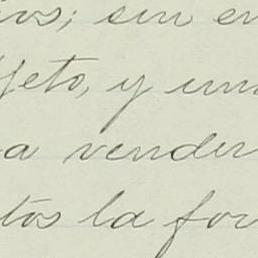 ios; sin en
jeto, y un
a vender
tos la for